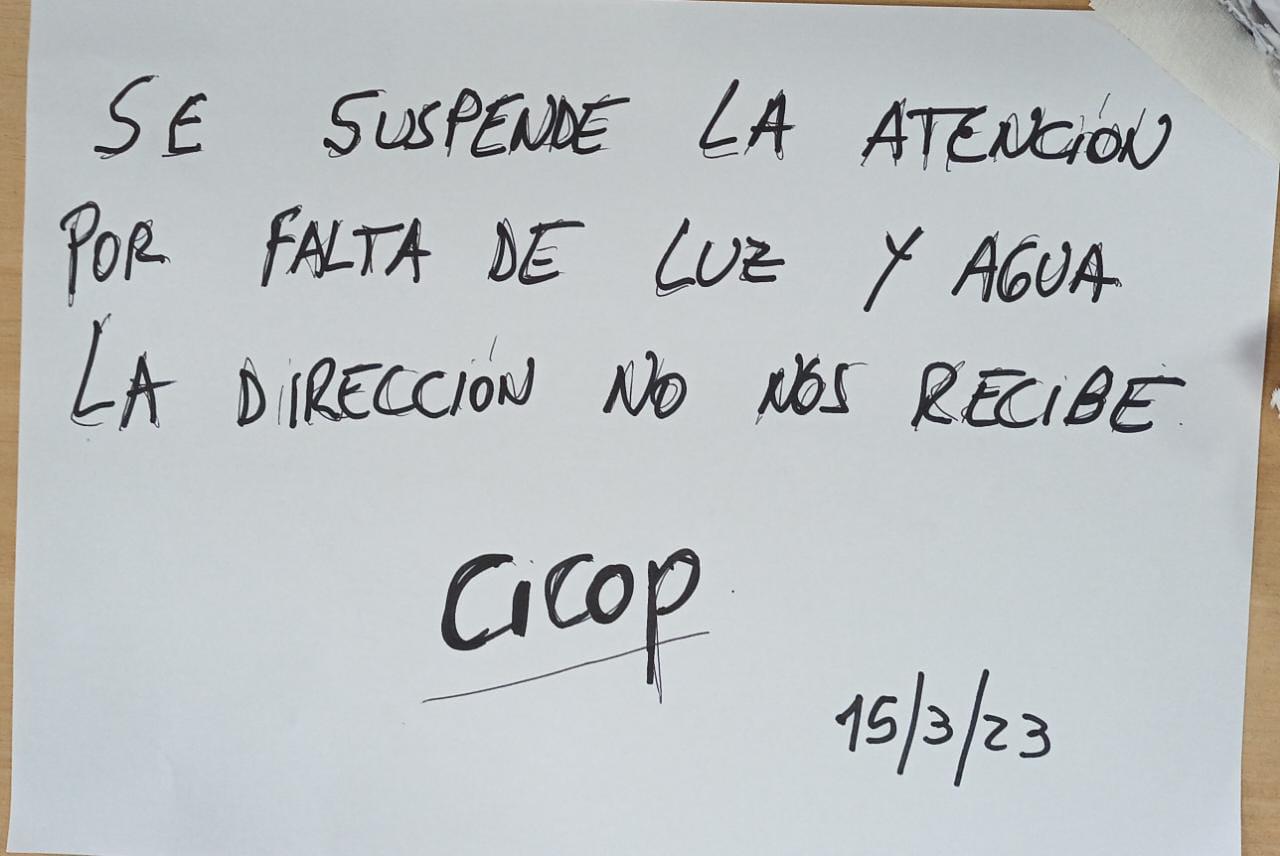 SE SUSPENDE LA ATENCIÓN
POR FALTA DE LUZ Y AGUA
LA DIRECCIÓN NO NOS RECIBE.
CiCOP
15/3/23